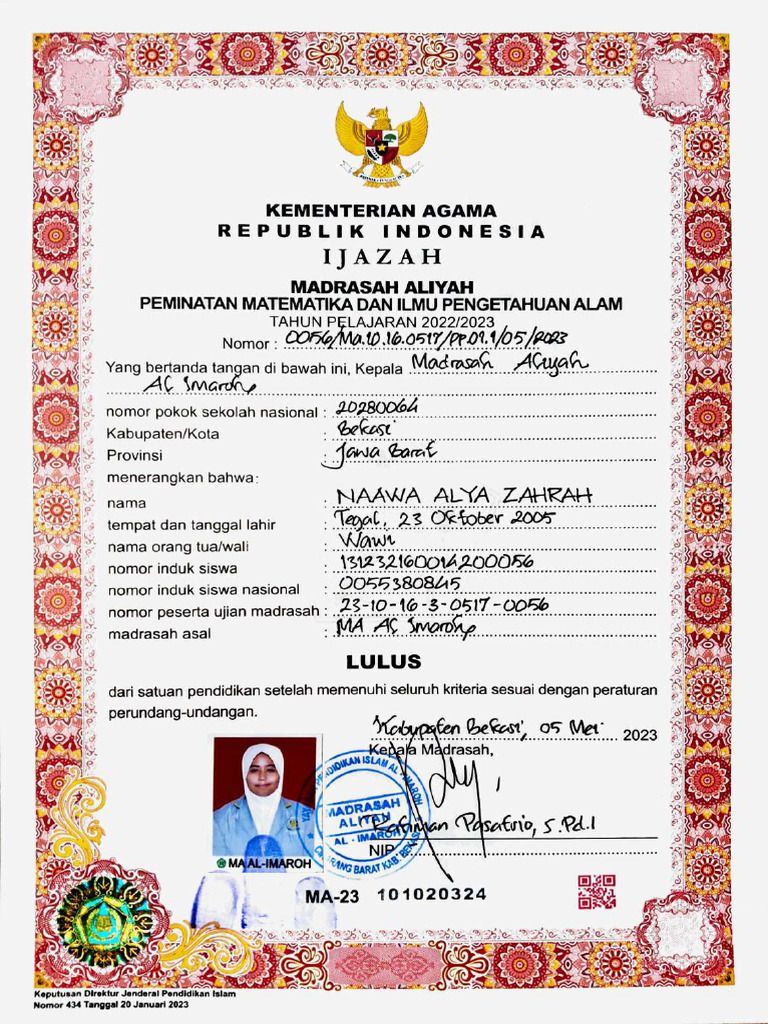 KEMENTERIAN AGAMA
REPUBLIK INDONESIA
IJAZAH
MADRASAH ALIYAH
PEMINATAN MATEMATIKA DAN ILMU PENGETAHUAN ALAM
TAHUN PELAJARAN 2022/2023
Nomor : 0056/Ma.10.16.0517/PP.01.1/05/2023
Yang bertanda tangan di bawah ini, Kepala Madrasah Aliyah
Al Imaroh
nomor pokok sekolah nasional : 20280064
Kabupaten/Kota : Bekasi
Provinsi : Jawa Barat
menerangkan bahwa:
nama : NAAWA ALYA ZAHRAH
tempat dan tanggal lahir : Tegal, 23 Oktober 2005
nama orang tua/wali : Wawi
nomor induk siswa : 131232160014200056
nomor induk siswa nasional : 0055380845
nomor peserta ujian madrasah : 23-10-16-3-0517-0056
madrasah asal : MA Al Imaroh
LULUS
dari satuan pendidikan setelah memenuhi seluruh kriteria sesuai dengan peraturan
perundang-undangan.
Kabupaten Bekasi, 05 Mei 2023
Kepala Madrasah,
PENDIDIKAN ISLAM AL-IMAROH
MADRASAH
ALIYAH
AL - IMAROH
CIKARANG BARAT KAB. BEKASI
S.Pd.I
NIP.
MA AL-IMAROH
MA-23 101020324
Keputusan Direktur Jenderal Pendidikan Islam
Nomor 434 Tanggal 20 Januari 2023